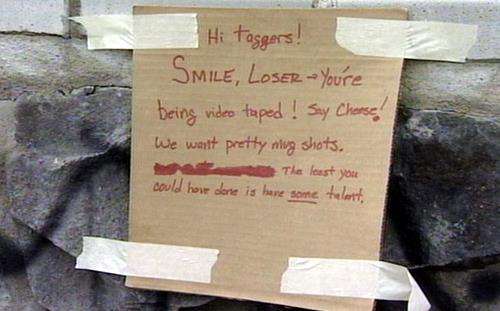 Hi taggers!
SMILE, LOSER → You're
being video taped! Say Cheese!
We want pretty mug shots.
The least you
could have done is have some talent.